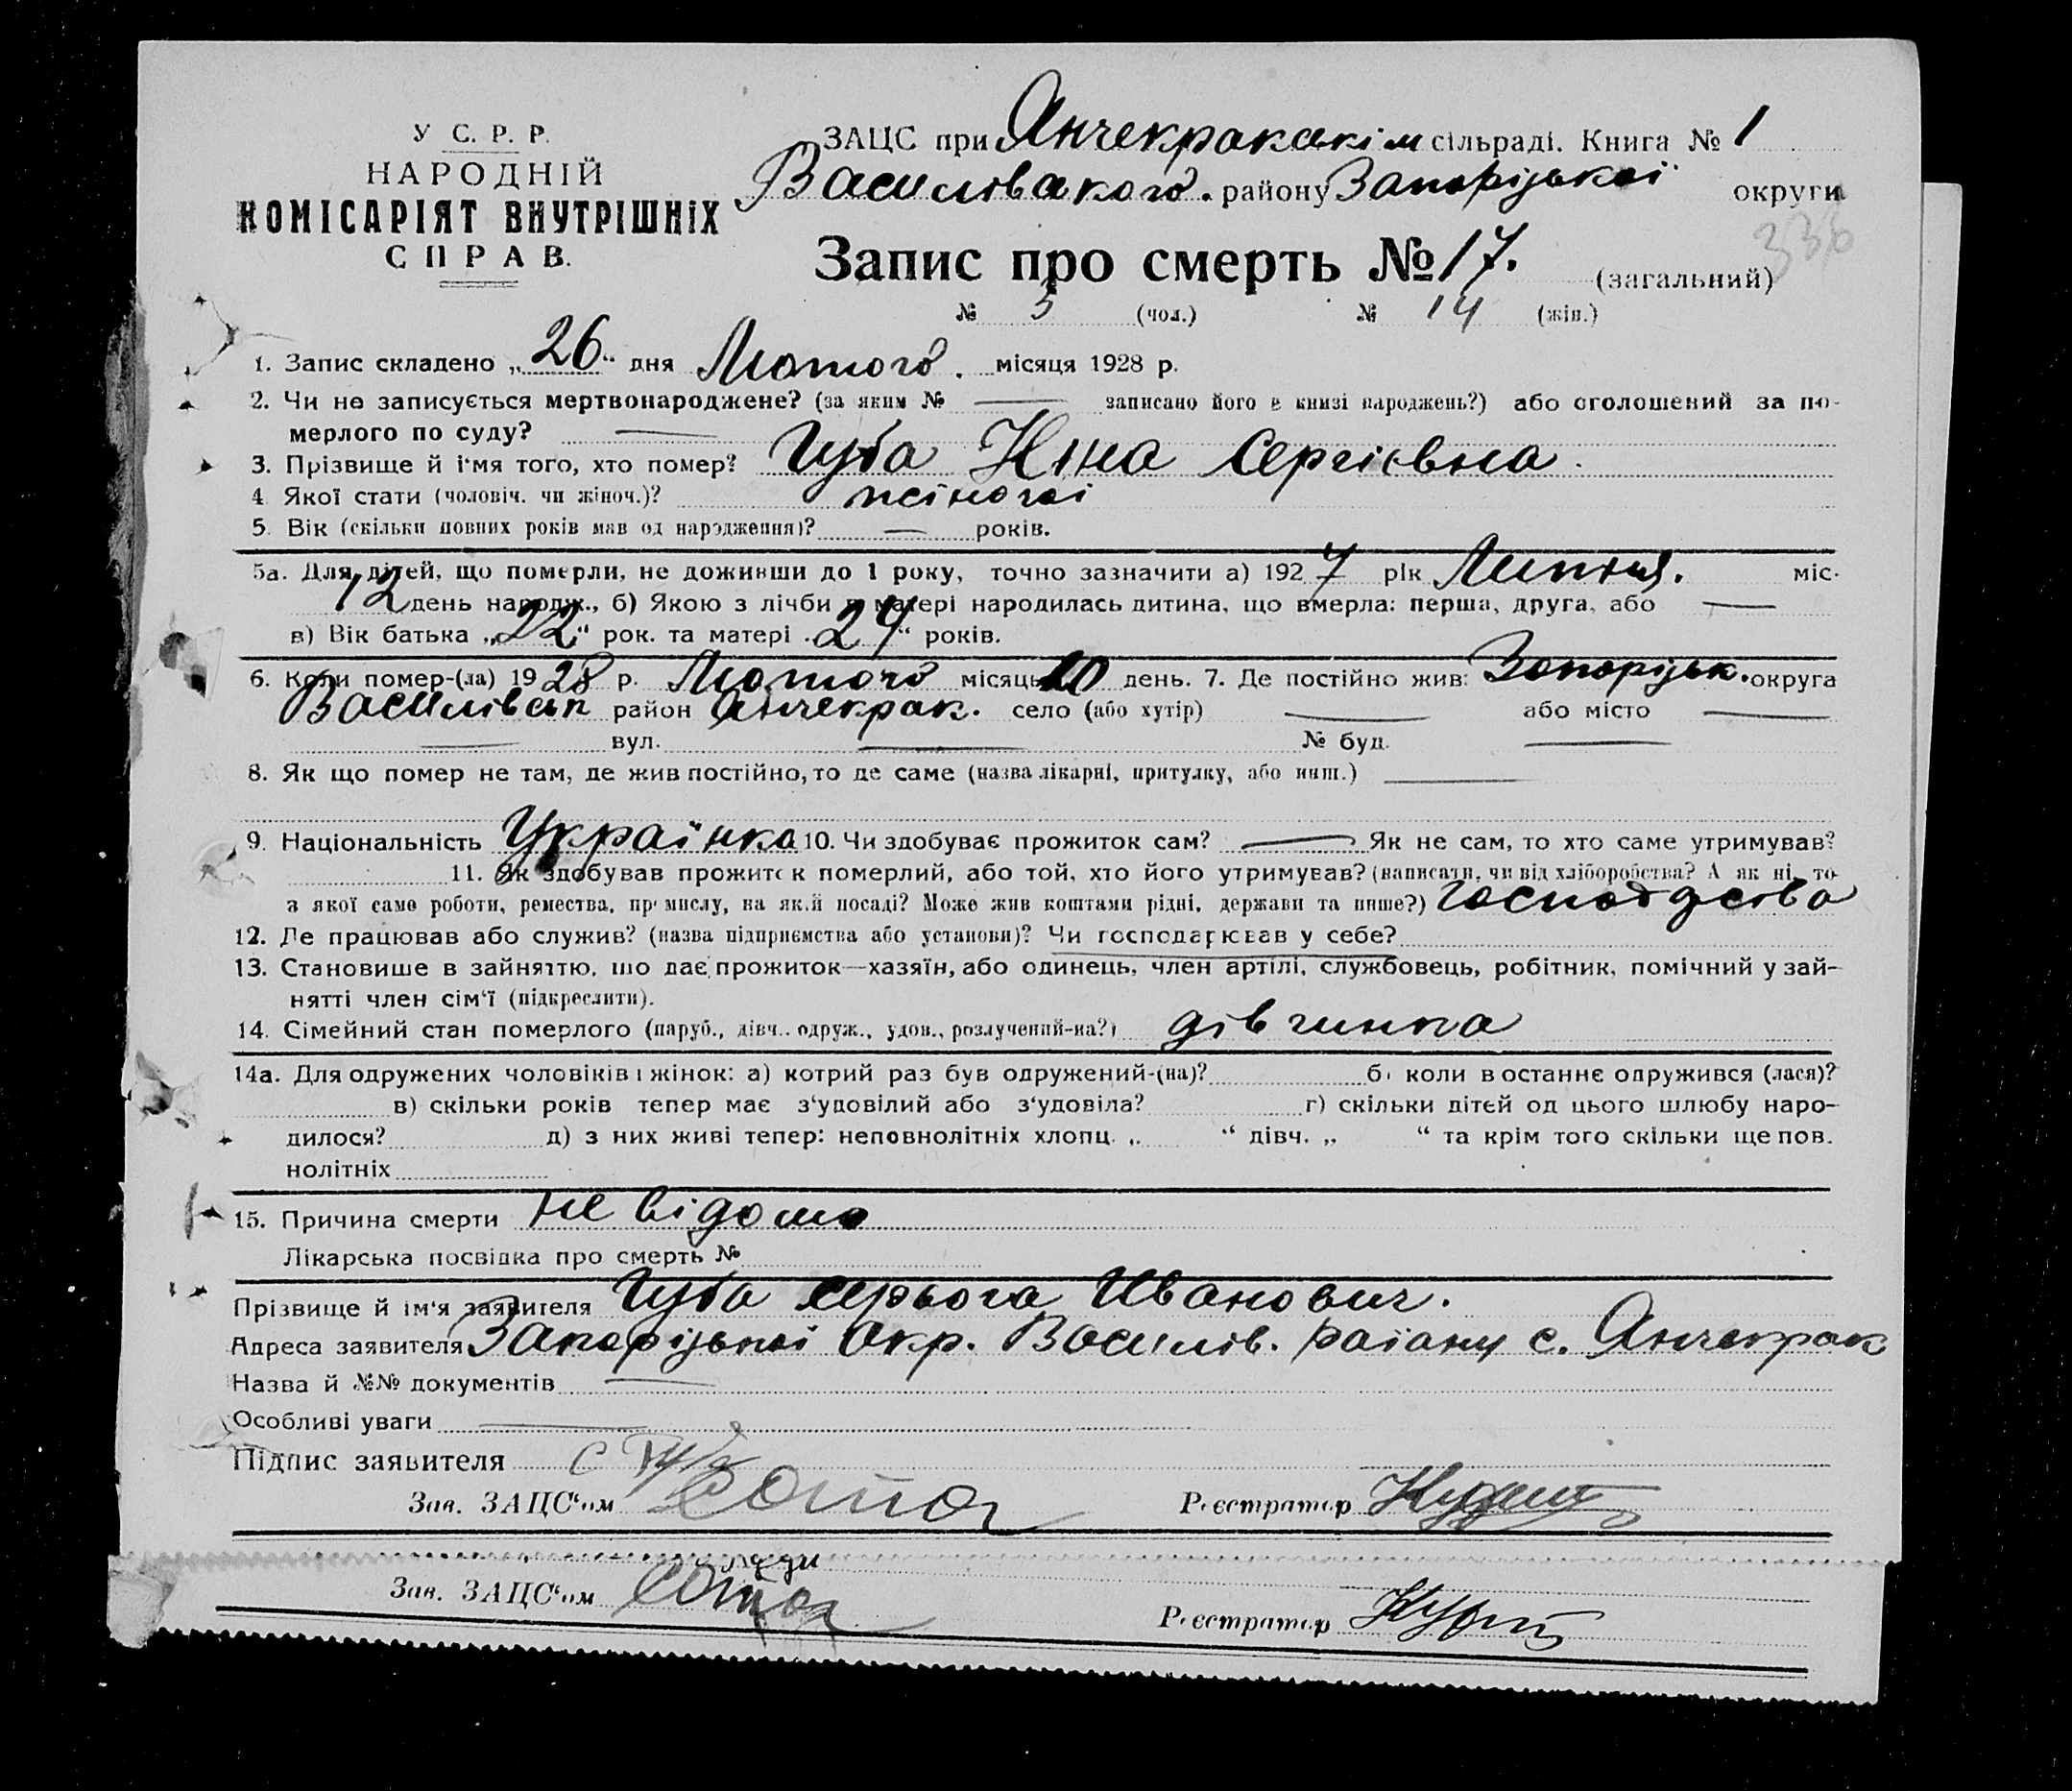 У С. Р. Р.
НАРОДНІЙ
КОМІСАРІЯТ ВНУТРІШНІХ
СПРАВ.
ЗАЦС при Янчекракскім сільраді. Книга № 1
Василівского. району Запоріжькоі округи
336
Запис про смерть № 17. (загальний)
№ 3 (чол.) № 14 (жін.)
1. Запис складено „26“ дня Лютого. місяця 1928 р.
2. Чи не записується мертвонароджене? (за яким № — записано його в книзі народжень?) або оголошений за по-
мерлого по суду? —
3. Прізвище й і‘мя того, хто помер? Губа Ніна Сергієвна.
4 Якої стати (чоловіч. чи жіноч.)? жіночоі
5. Вік (скільки повних років мав од народження)? — років.
5а. Для дітей, що померли, не доживши до 1 року, точно зазначити а) 1927 рік Липня. міс.
12 день народж., б) Якою з лічби в матері народилась дитина, що вмерла: перша, друга, або —
в) Вік батька „22“ рок. та матері „24“ років.
6. Коли помер-(ла) 1928 р. Лютого місяць 10 день. 7. Де постійно жив: Запоріжьк. округа
Василівськ район Янчекрак. село (або хутір) — або місто —
— вул. — № буд. —
8. Як що помер не там, де жив постійно, то де саме (назва лікарні, притулку, або инш.) —
9. Національність Українка 10. Чи здобуває прожиток сам? — Як не сам, то хто саме утримував?
11. Як здобував прожиток померлий, або той, хто його утримував? (написати, чи від хліборобства? А як ні, то
з якої саме роботи, ремества, промислу, на якій посаді? Може жив коштами рідні, держави та инше?)
12. Де працював або служив? (назва підприємства або установи)? Чи господарював у себе?
13. Становище в зайняттю, що дає прожиток—хазяїн, або одинець, член артілі, службовець, робітник, помічний у зай-
нятті член сім‘ї (підкреслити).
14. Сімейний стан померлого (паруб., дівч., одруж., удов., розлучений-на?) дівчинка
14а. Для одружених чоловіків і жінок: а) котрий раз був одружений-(на)? б) коли в останнє одружився (лася)?
в) скільки років тепер має з‘удовілий або з‘удовіла? г) скільки дітей од цього шлюбу наро-
дилося? д) з них живі тепер: неповнолітніх хлопц. „ “ дівч. „ “ та крім того скільки ще пов.
нолітніх
15. Причина смерти не відомо
Лікарська посвідка про смерть №
Прізвище й ім‘я заявителя Губа Серьога Иванович.
Адреса заявителя Запоріжькоі Окр. Василів. раіану с. Янчекрак
Назва й №№ документів —
Особливі уваги —
Підпис заявителя С Губа
Зав. ЗАЦС‘ом Реєстратор
Зав. ЗАЦС‘ом Реєстратор